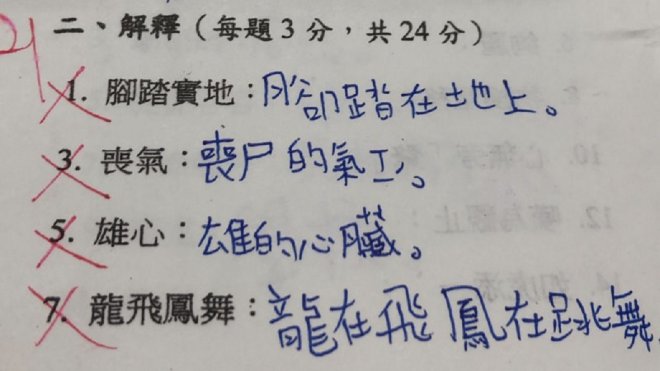 二、解釋（每題3分，共24分）
1. 腳踏實地：腳踏在土地上。
3. 喪氣：喪尸的氣工。
5. 雄心：雄的心臟。
7. 龍飛鳳舞：龍在飛 鳳在跳舞